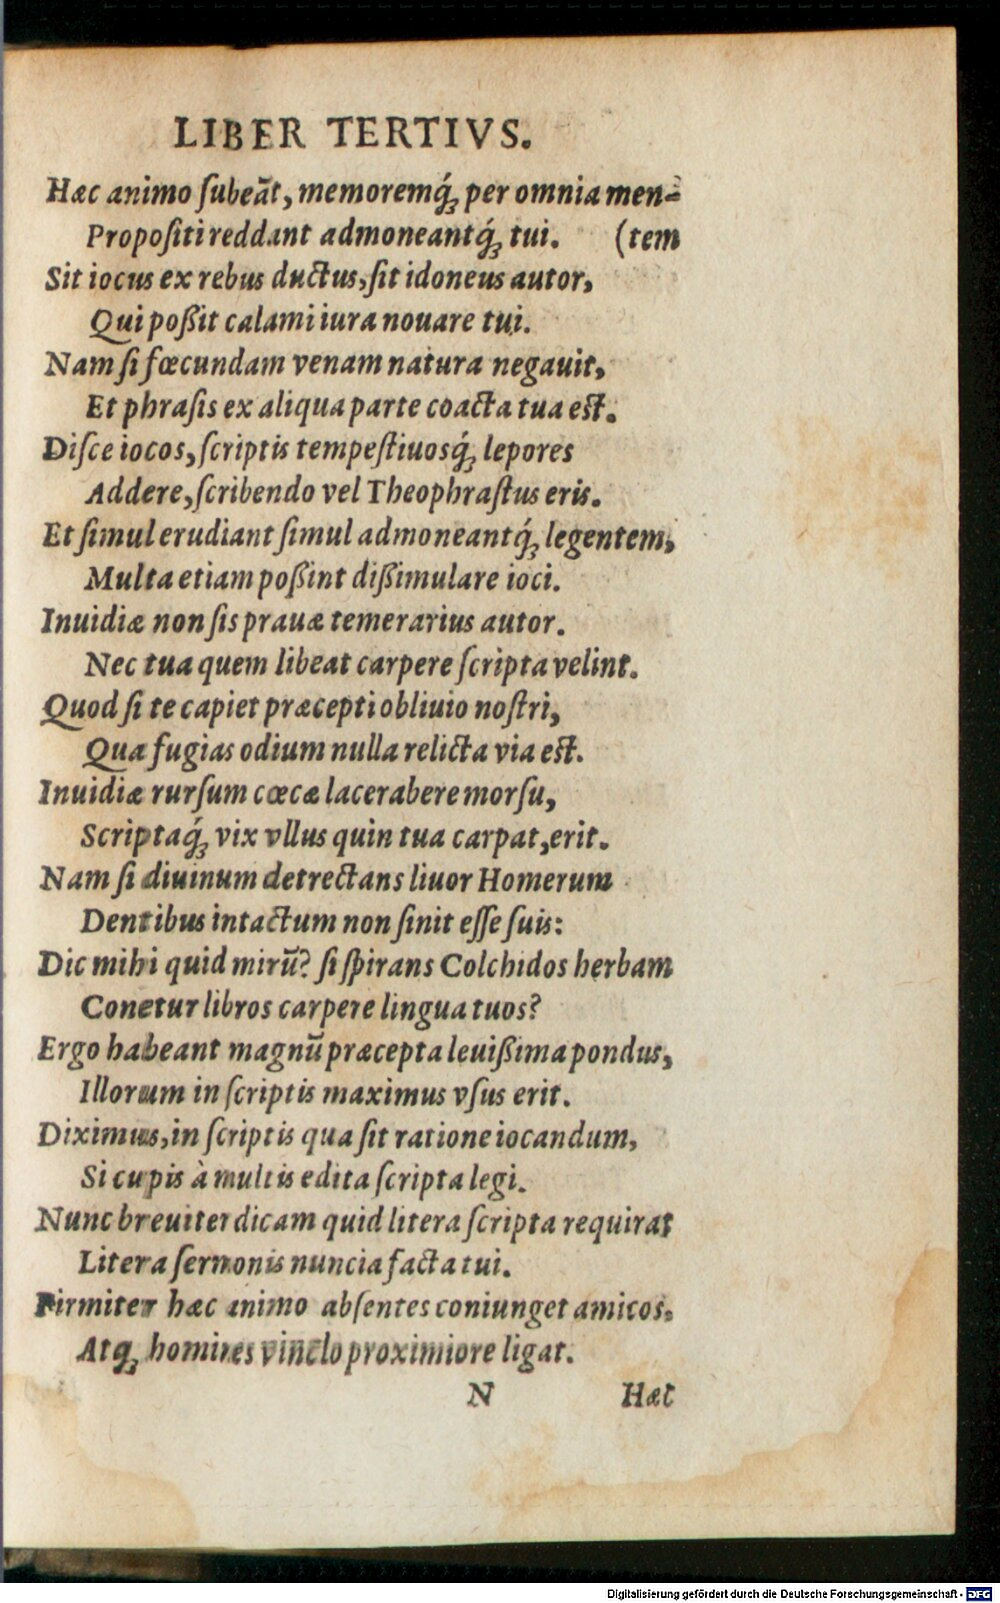 LIBER TERTIVS.
Hæc animo ſubeãt, memoremq́ꝫ per omnia men-
Propoſiti reddant admoneantq́ꝫ tui. (tem
Sit iocus ex rebus ductus, ſit idoneus autor,
Qui poßit calami iura nouare tui.
Nam ſi fœcundam venam natura negauit,
Et phraſis ex aliqua parte coacta tua eſt.
Diſce iocos, ſcriptis tempeſtiuosq́ꝫ lepores
Addere, ſcribendo vel Theophraſtus eris.
Et ſimul erudiant ſimul admoneantq́ꝫ legentem,
Multa etiam poßint dißimulare ioci.
Inuidiæ non ſis prauæ temerarius autor.
Nec tua quem libeat carpere ſcripta velint.
Quod ſi te capiet præcepti obliuio noſtri,
Qua fugias odium nulla relicta via eſt.
Inuidiæ rurſum cœcæ lacerabere morſu,
Scriptaq́ꝫ vix vllus quin tua carpat, erit.
Nam ſi diuinum detrectans liuor Homerum
Dentibus intactum non ſinit eſſe ſuis:
Dic mihi quid mirũ? ſi ſpirans Colchidos herbam
Conetur libros carpere lingua tuos?
Ergo habeant magnũ præcepta leuißima pondus,
Illorum in ſcriptis maximus vſus erit.
Diximus, in ſcriptis qua ſit ratione iocandum,
Si cupis à multis edita ſcripta legi.
Nunc breuiter dicam quid litera ſcripta requirat
Litera ſermonis nuncia facta tui.
Firmiter hæc animo abſentes coniunget amicos.
Atqꝫ homines vinclo proximiore ligat.
N Hæc
Digitalisierung gefördert durch die Deutsche Forschungsgemeinschaft - DFG